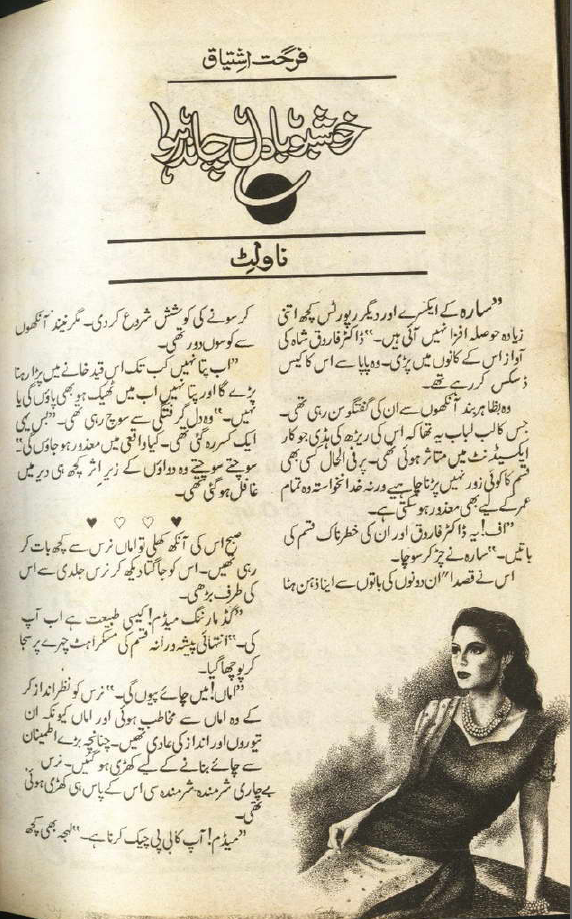 فرحت اشتیاق
خوشبو بادل چاند ہوا
ناولٹ
”سارہ کے ایکسرے اور دیگر رپورٹس کچھ اتنی
زیادہ حوصلہ افزا نہیں آئی ہیں۔“ ڈاکٹر فاروق شاہ کی
آواز اس کے کانوں میں پڑی۔ وہ پاپا سے اس کا کیس
ڈسکس کر رہے تھے۔
وہ بظاہر بند آنکھوں سے ان کی گفتگو سن رہی تھی۔
جس کا لب لباب یہ تھا کہ اس کی ریڑھ کی ہڈی جو کار
ایکسیڈنٹ میں متاثر ہوئی تھی۔ پر فی الحال کسی بھی
قسم کا کوئی زور نہیں پڑنا چاہیے ورنہ خدانخواستہ وہ تمام
عمر کے لیے بھی معذور ہو سکتی ہے۔
”اف! یہ ڈاکٹر فاروق اور ان کی خطرناک قسم کی
باتیں۔“ سارہ نے چڑ کر سوچا۔
اس نے قصدا“ ان دونوں کی باتوں سے اپنا ذہن ہٹا
کر سونے کی کوشش شروع کر دی۔ مگر نیند آنکھوں
سے کوسوں دور تھی۔
”اب پتا نہیں کب تک اس قید خانے میں پڑا رہنا
پڑے گا اور پتا نہیں اب میں ٹھیک ہو بھی پاؤں گی یا
نہیں۔“ وہ دل گرفتگی سے سوچ رہی تھی۔ ”بس یہی
ایک کسر رہ گئی تھی۔ کیا واقعی میں معذور ہو جاؤں گی“
سوچتے سوچتے وہ دواؤں کے زیر اثر کچھ ہی دیر میں
غافل ہو گئی تھی۔
♥ ♡ ♡ ♥
صبح اس کی آنکھ کھلی تو اماں نرس سے کچھ بات کر
رہی تھیں۔ اس کو جاگتا دیکھ کر نرس جلدی سے اس
کی طرف بڑھی۔
”گڈ مارننگ میڈم! کیسی طبیعت ہے اب آپ
کی۔“ انتہائی پیشہ ورانہ قسم کی مسکراہٹ چہرے پر سجا
کر پوچھا گیا۔
”اماں! میں چائے پیوں گی۔“ نرس کو نظر انداز کر
کے وہ اماں سے مخاطب ہوئی اور اماں کیونکہ ان
تیوروں اور انداز کی عادی تھیں۔ چنانچہ بڑے اطمینان
سے چائے بنانے کے لیے کھڑی ہو گئیں۔ نرس
بےچاری شرمندہ شرمندہ سی اس کے پاس ہی کھڑی ہوئی
تھی۔
”میڈم! آپ کا بی پی چیک کرنا ہے۔“ لہجہ بھی کچھ